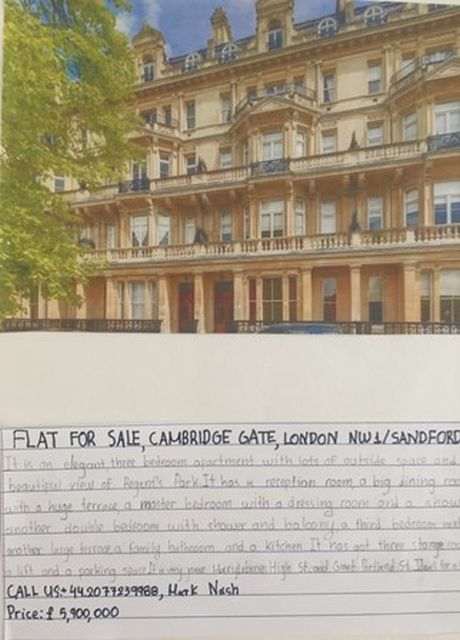 FLAT FOR SALE, CAMBRIDGE GATE, LONDON NW1/SANDFORD
It is an elegant three bedroom apartment with lots of outside space and
beautiful view of Regent's Park. It has a reception room, a big dining roo
with a huge terrace, a master bedroom with a dressing room and a showe
another double bedroom with shower and balcony, a third bedroom with
another large terrace, a family bathroom and a kitchen. It has got three storage roo
a lift and a parking space. It is very near Marylebone High St. and Great Portland St.
CALL US:+442077239988, Mark Nash
Price: £ 5,900,000